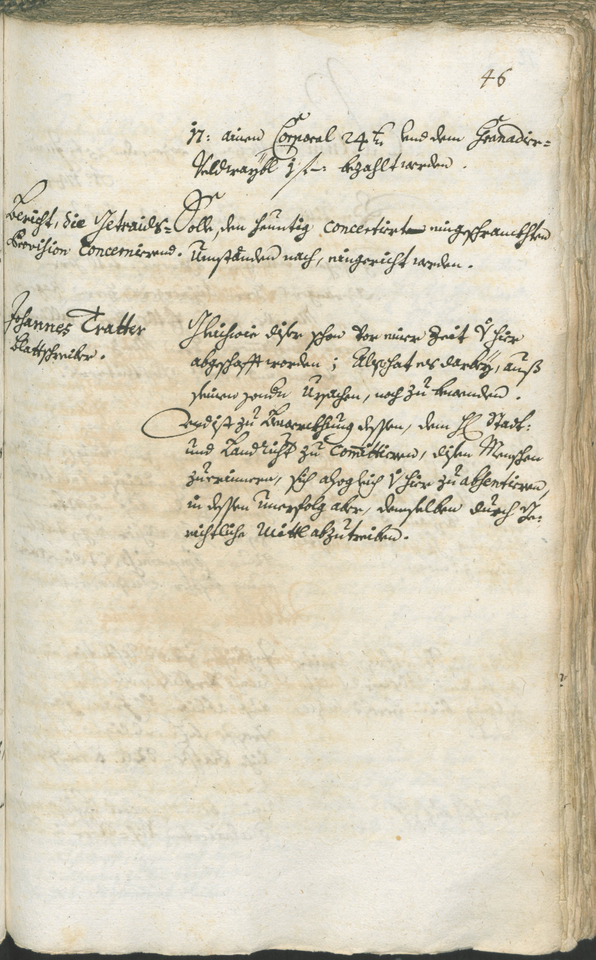 46
17: ainen Corporal 24 kr und dem Granadier-
Veldwaybl 1 f bezahlt werden.
Bericht, die Getraids-
Provision Concernirend.
Solle, den heuntig concertirten eingeschranckhten
Umständen nach, eingericht werden.
Johannes Tratter
Blattschreiber.
Gleichwie diser schon vor einer Zeit hier
abgeschafft worden; Als hat es darbey, auß
seinen Ursachen, noch zu bewenden.
Und ist zu dessen, dem H: Statt-
und Landricht: zu Committieren, disen Menschen
zuerinnern, sich also gleich hier zu absentieren,
in dessen unerfolg aber, demselben durch Ge-
richtliche Mittl abzutreiben.